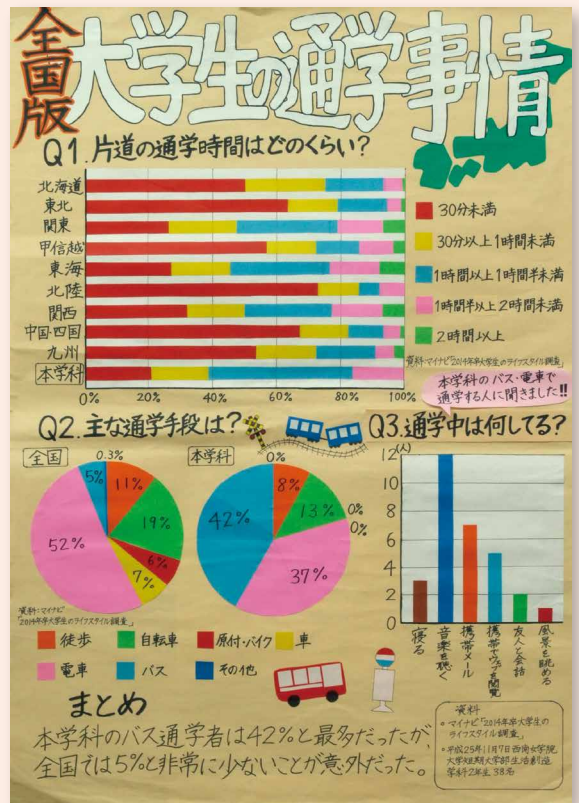 全国版
大学生の通学事情
Q1.片道の通学時間はどのくらい?
北海道
東北
関東
甲信越
東海
北陸
関西
中国・四国
九州
本学科
0% 20% 40% 60% 80% 100%
30分未満
30分以上1時間未満
1時間以上1時間半未満
1時間半以上2時間未満
2時間以上
資料:マイナビ「2014年卒大学生のライフスタイル調査」
本学科のバス・電車で
通学する人に聞きました!!
Q2.主な通学手段は?
全国
0.3%
5%
11%
19%
6%
7%
52%
本学科
0%
8%
13%
0%
0%
37%
42%
資料:マイナビ
「2014年卒大学生のライフスタイル調査」
徒歩
自転車
原付・バイク
車
電車
バス
その他
Q3.通学中は何してる?
(人)
12
10
8
6
4
2
0
寝る
音楽を聴く
携帯でメール
携帯でウェブを閲覧
友人と会話
風景を眺める
まとめ
本学科のバス通学者は42%と最多だったが、
全国では5%と非常に少ないことが意外だった。
資料
マイナビ「2014年卒大学生の
ライフスタイル調査」
平成25年11月7日西南女学院
大学短期大学部生活創造
学科2年生38名